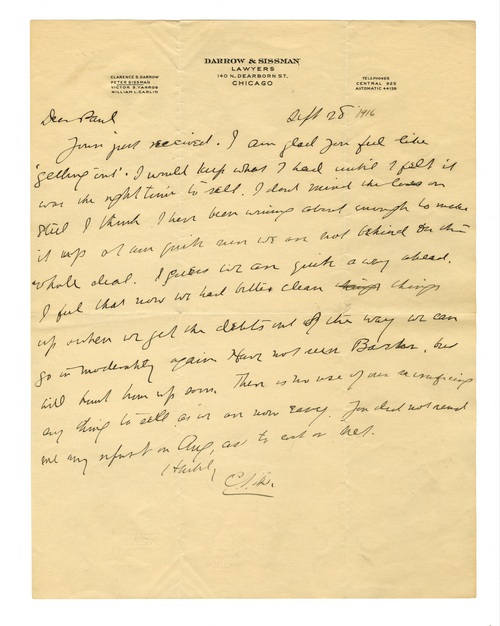 DARROW & SISSMAN
LAWYERS
140 N. DEARBORN ST.
CHICAGO
CLARENCE S. DARROW
PETER SISSMAN
VICTOR S. YARROS
WILLIAM L. CARLIN
TELEPHONES
CENTRAL 925
AUTOMATIC 44139
Dear Paul
Sept 28 1916
Yours just received. I am glad you feel like
"getting out". I would keep what I had until I felt it
was the right time to sell. I dont mind the loss on
Steel I think I have been winning about enough to make
it up at am quite sure we are not behind on the
whole deal. I guess we are quite a way ahead.
I feel that now we had better clean things
up & when we get the debts out of the way we can
go in moderately again Have not seen Barker, but
will hunt him up soon. There is no use of our sacrificing
any thing to sell as we are now easy. You did not send
me any report on Aug, as to cost or net.
C.S.D.